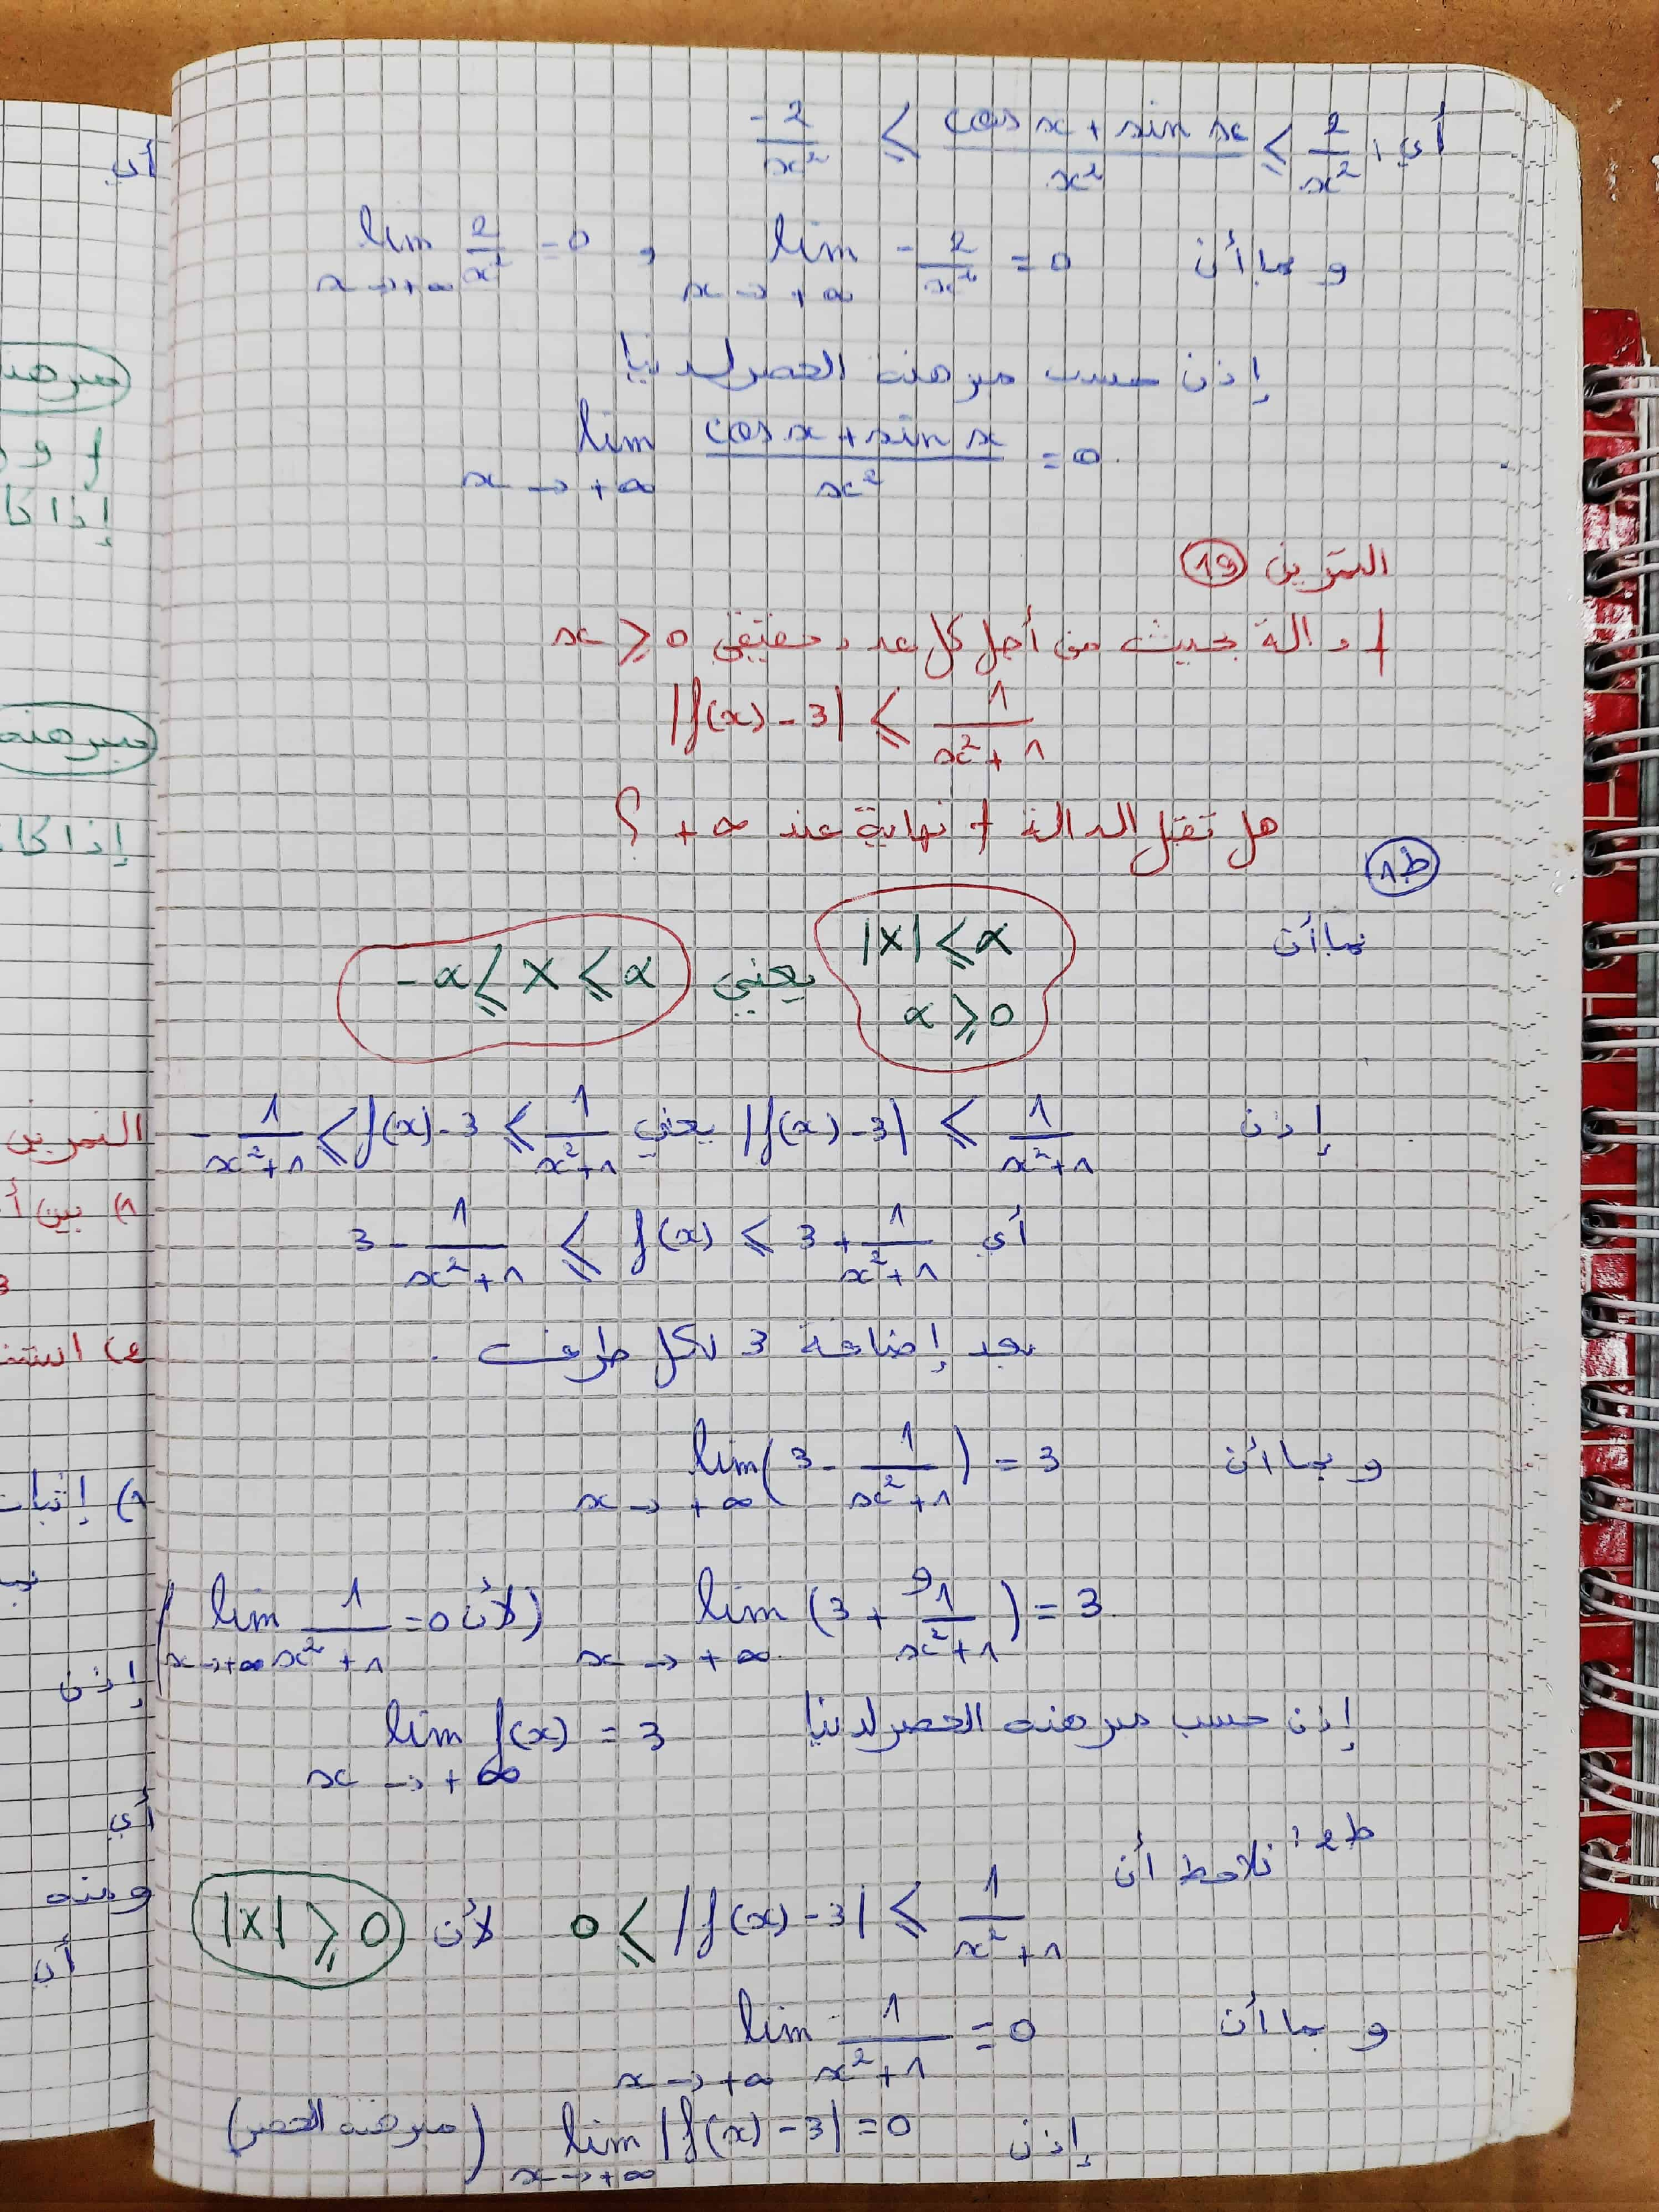 أي: -2/x² ⩽ (cos x + sin x)/x² ⩽ 2/x²
و بما أن lim_{x→+∞} -2/x² = 0 و lim_{x→+∞} 2/x² = 0
إذن حسب مبرهنة الحصر لدينا
lim_{x→+∞} (cos x + sin x)/x² = 0.
التمرين 19
f دالة بحيث من أجل كل عدد حقيقي x ⩾ 0
|f(x) - 3| ⩽ 1/(x²+1)
هل تقبل الدالة f نهاية عند +∞ ؟
ط1
بما أن |X| ⩽ α α ⩾ 0 يعني -α ⩽ X ⩽ α
إذن |f(x) - 3| ⩽ 1/(x²+1) يعني -1/(x²+1) ⩽ f(x) - 3 ⩽ 1/(x²+1)
أي 3 - 1/(x²+1) ⩽ f(x) ⩽ 3 + 1/(x²+1)
بعد إضافة 3 لكل طرف .
و بما أن lim_{x→+∞} (3 - 1/(x²+1)) = 3
و
lim_{x→+∞} (3 + 1/(x²+1)) = 3. (لأن lim_{x→+∞} 1/(x²+1) = 0)
إذن حسب مبرهنة الحصر لدينا lim_{x→+∞} f(x) = 3
ط2: نلاحظ أن
0 ⩽ |f(x) - 3| ⩽ 1/(x²+1) لأن |X| ⩾ 0
و بما أن lim_{x→+∞} 1/(x²+1) = 0
إذن lim_{x→+∞} |f(x) - 3| = 0 (مبرهنة الحصر)
أي
f و
التمرين
1) بين
3
1) إثبات
إذن
أي
ومنه
أن